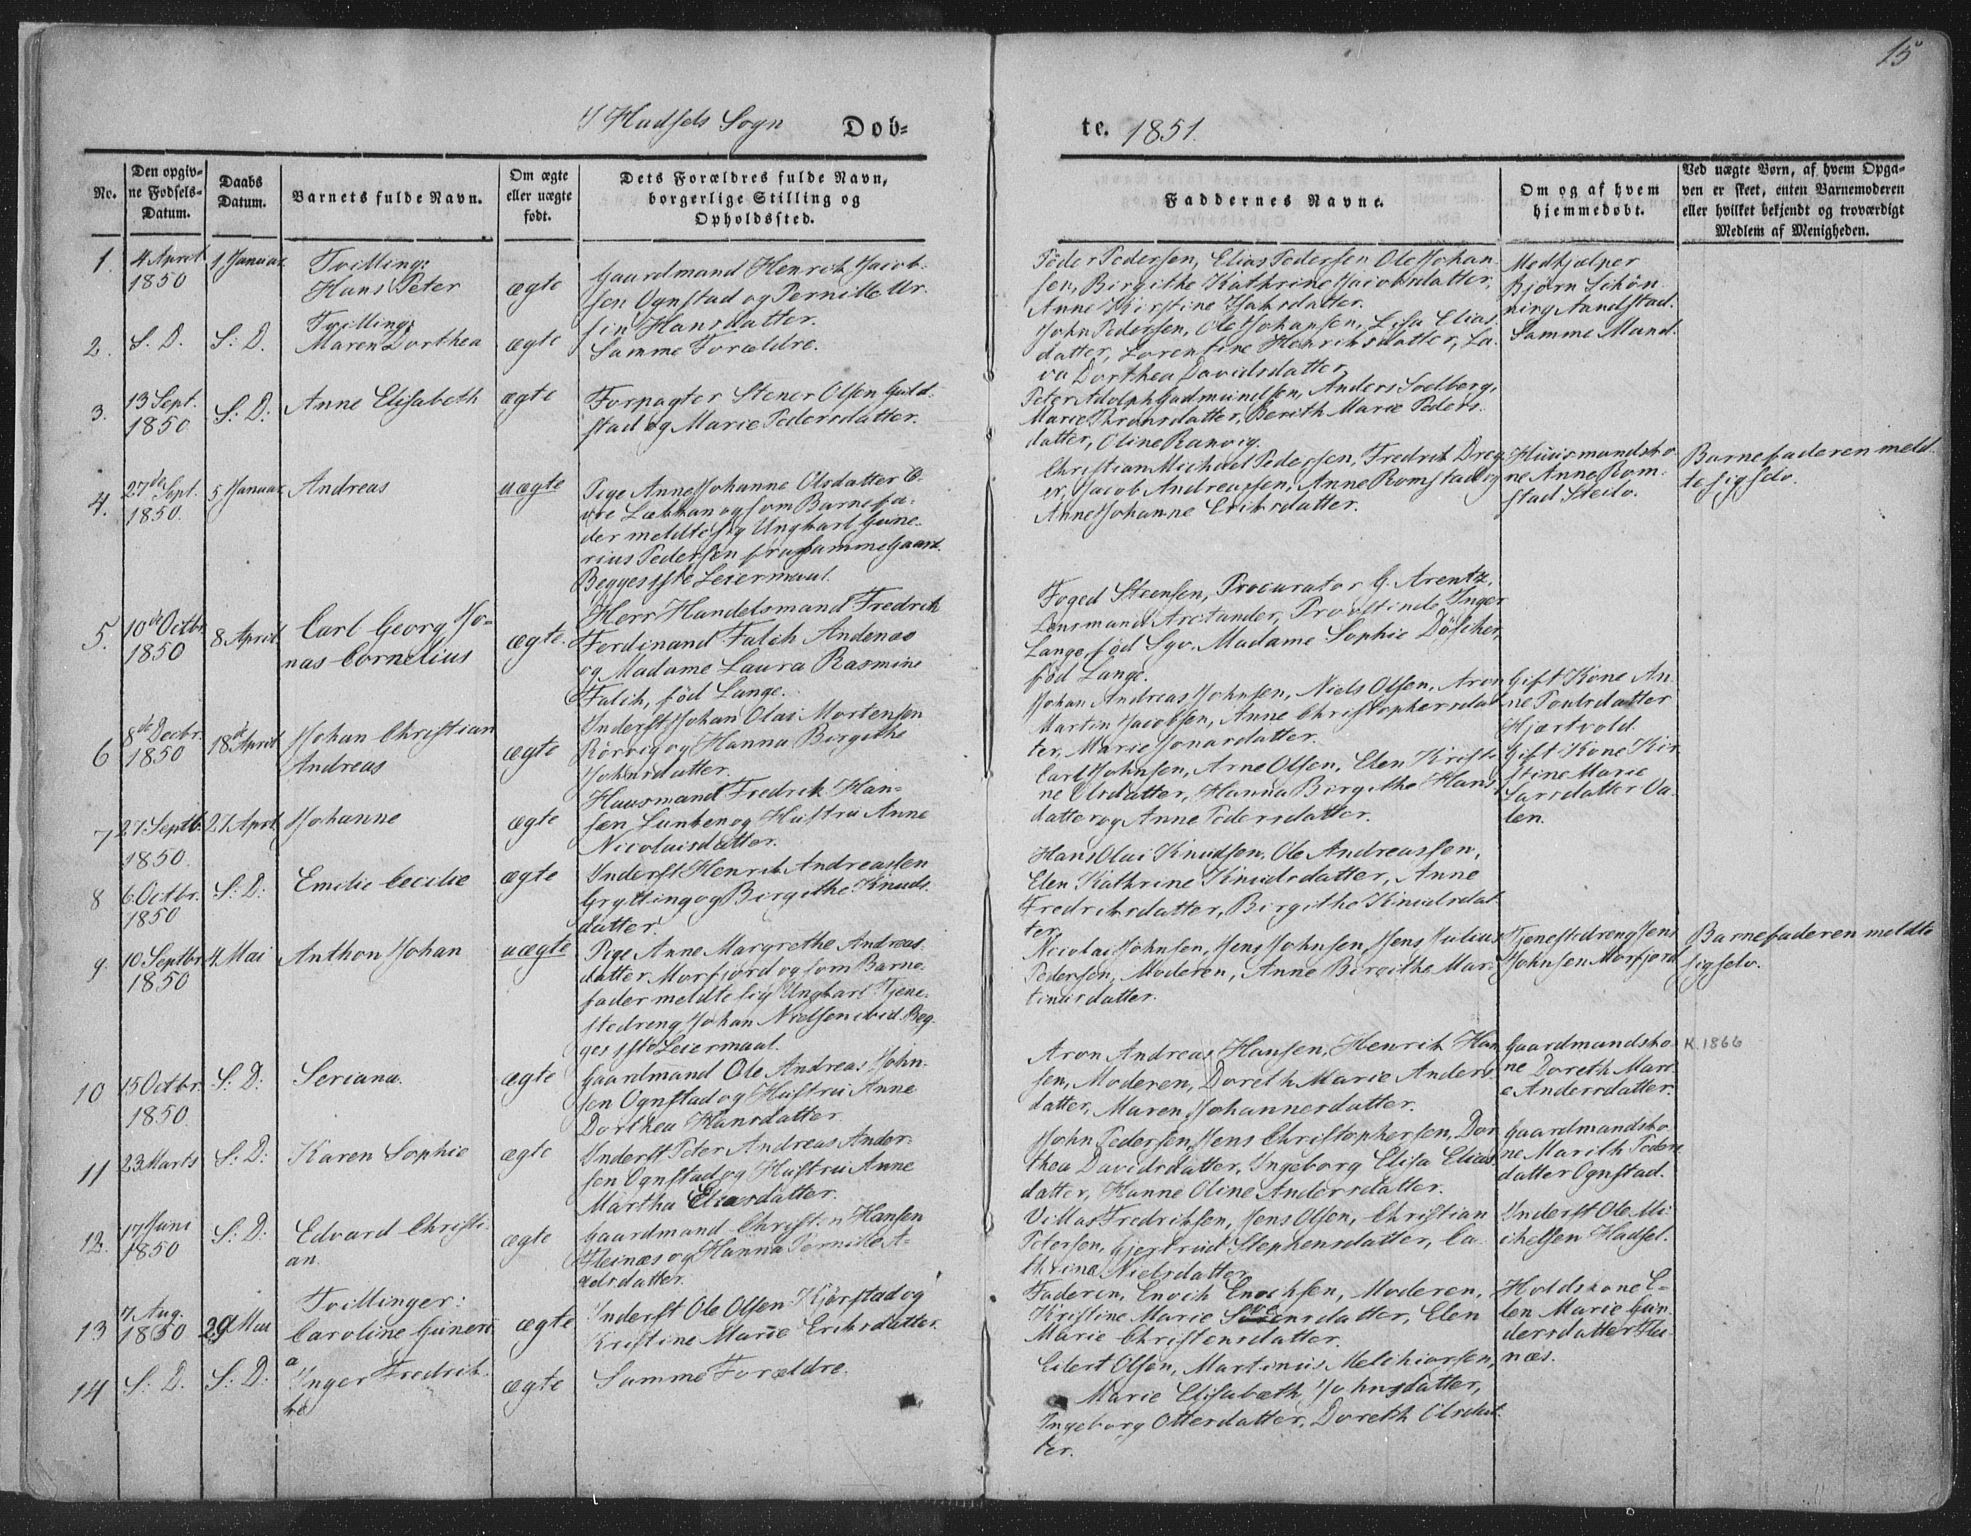 15
I Hadsels Sogn Dob-
te. 1851.
No.
Den opgiv-
ne Fødsels-
Datum.
Daabs
Datum.
Barnets fulde Navn.
Om ægte
eller uægte
født.
Dets Forældres fulde Navn,
borgerlige Stilling og
Opholdssted.
Faddernes Navne.
Om og af hvem
hjemmedøbt.
Ved uægte Børn, af hvem Opga-
ven er skeet, enten Barnemoderen
eller hvilket bekjendt og troværdigt
Medlem af Menigheden.
1.
4 April
1850
1 Januar
Tvilling:
Hans Peter
ægte
Gaardmand Henrik Jacob-
sen Ognstad og Pernille Ur-
sin Hansdatter.
Peder Pedersen, Elias Pedersen Ole Johan-
sen, Birgithe Kathrine Jacobsdatter,
Anne Kirstine
Medhjælper
Bjørn Schøn
ning Aandstad.
2.
S. D.
S: D.
Tvilling:
Maren Dorthea
ægte
Samme Forældre.
John Pedersen, Ole Johansen, Lisa Elias
datter, Lorentine Henriksdatter, La-
va Dorthea Davidsdatter
Samme Mand.
3.
13 Sept.
1850
S: D:
Anne Elisabeth
ægte
Forpagter Stener Olsen Guld-
stad og Marie Pedersdatter.
Peter Adolph Gudmundsen, Anders Soelberg,
Marie Thronsdatter, Berith Marie Peders-
datter, Oline Ranvig.
4.
27de Sept.
1850.
5 Januar
Andreas
uægte
Pige Anne Johanne Olsdatter Ø-
vre Læhkan og som Barnefa-
der meldte sig Ungkarl Gune-
rius Pedersen fra samme Gaard.
Begges 1ste Leiermaal.
Christian Michael Pedersen, Fredrik Dreg
er, Jacob Andreassen, Anne Romstad og
Anne Johanne Eriksdatter.
Huusmandsko
ne Anne Rom-
stad Steilo.
Barnefaderen meld-
te sig selv.
5.
10de Octbr
1850
8 April
Carl Georg Jo-
nas Cornelius
ægte.
Herr Handelsmand Fredrik
Ferdinand Falch Andenæs
og Madame Laura Rasmine
Falch, fød Lange.
Foged Steensen, Procurator G. Arentz,
Lensmand Arctander, Provstinde Inger
Lange, fød Sgv. Madame Sophie Døscher,
fød Lange.
6
8de Decbr.
1850
18de April
Johan Christian
Andreas
ægte
Inderst Johan Olai Mortensen
Rørvig og Hanna Birgithe
Johnsdatter.
Johan Andreas Johnsen, Niels Olsen, Aron
Martin Jacobsen, Anne Christophersdat
ter, Marie Jonasdatter.
Gift Kone An-
ne Poulsdatter
Hjartvold.
7
27 Septb.
1850.
21 April
Johanne
ægte
Huusmand Fredrik Han-
sen Lunken og Hustru Anne
Nicolaisdatter.
Carl Johnsen, Arne Olsen, Elen Kristi-
ne Olsdatter, Hanna Birgithe Hans
datter og Anne Pedersdatter.
Gift Kone Kir-
stine Marie
Larsdatter Va-
len.
8
6 Octbr.
1850
S: D:
Emilie Cecilie
ægte
Inderst Henrik Andreassen
Grytting og Birgithe Knuds-
datter.
Hans Olai Knudsen, Ole Andreassen,
Elen Kathrine Knudsdatter, Anne
Fredriksdatter, Birgithe Knudsdat
ter.
9.
10 Septbr
1850
4 Mai
Anthon Johan
uægte
Pige Anne Margrethe Andreas-
datter Morfjord og som Barne-
fader meldte sig Ungkarl Tjene-
stedreng Johan Nielsen ibid. Beg-
ges 1ste Leiermaal.
Nicolai Johnsen, Jens Johnsen Jens Julius
Pedersen, Moderen, Anne Birgithe Mar-
tinusdatter.
Tjenestedreng Jens
Johnsen Morfjord
Barnefaderen meldte
sig selv.
10
15 Octbr.
1850
S: D:
Seriana.
ægte
Gaardmand Ole Andreas John-
sen Ognstad og Hustru Anne
Dorthea Hansdatter.
Aron Andreas Hansen, Henrik Han
sen, Moderen, Dorethe Marie Anders
datter, Maren Johannesdatter.
Gaardmandsko
ne Doreth Mari
e Andersdatter.
K. 1866
11
23 Marts
S: D:
Karen Sophie
ægte
Inderst Peter Andreas Ander-
sen Ognstad og Hustru Anne
Martha Eliasdatter.
John Pedersen, Jens Christophersen, Dor
thea Davidsdatter, Ingeborg Elisa Elias
datter, Hanne Oline Andersdatter.
Gaardmandsko
ne Marith Peders
datter Ognstad.
12.
17 Juni
1850
S: D:
Edvard Christi-
an.
ægte
Gaardmand Christen Hansen
Steinæs og Hanna Pernille A-
xelsdatter.
Villas Fredriksen, Jens Olsen, Christian
Petersen, Gjertrud Stephensdatter, Ca-
thrina Nielsdatter
Inderst Ole Mi-
chelsen Hadsel.
13
7 Aug.
1850
29 Mai
Tvillinger:
Caroline Guneri
a
ægte
Inderst Ole Olsen Kjørstad og
Kristine Marie Eriksdatter.
Faderen, Enoch Enochsen, Moderen,
Kristine Marie datter, Elen
Marie Christensdatter
Holdskone E-
len Marie Gun-
dersdatter Stei-
næs.
14
S: D.
S: D:
Inger Fredrik-
ke
ægte
Samme Forældre.
Eilert Olsen, Martinus Melchiorsen,
Marie Elisabeth Johnsdatter,
Ingeborg Ottersdatter, Doreth Olsdat-
ter.